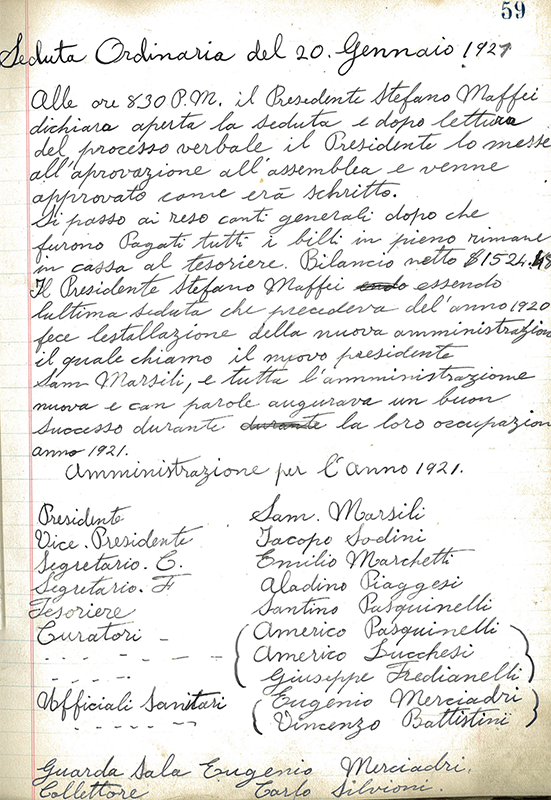 59
Seduta Ordinaria del 20. Gennaio 1921
Alle ore 830 P.M. il Presedente Stefano Maffei
dichiara aperta la seduta e dopo lettura
del processo verbale il Presidente lo messe
all'aprovazione all'assemblea e venne
approvato come erà schritto.
Si passo ai reso conti generali dopo che
furono Pagati tutti i billi in pieno rimane
in cassa al tesoriere. Bilancio netto $1524.48
Il Presidente Stefano Maffei endo essendo
lultima seduta che precedeva del'anno 1920
fece lestallazione della nuova amministrazion
il quale chiamo il nuovo presidente
Sam Marsili, e tutta l'amministrazione
nuova e con parole augurava un buon
successo durante durante la loro occupazion
anno 1921.
Amministrazione per l'Anno 1921.
Presidente Sam. Marsili
Vice. Presidente Iacopo Sodini
Segretario. C. Emilio Marchetti
Segretario. F Aladino Piaggesi
Tesoriere Santino Pasquinelli
Curatori - ( Americo Pasquinelli )
- - - - - - - ( Americo Lucchesi )
- - - - - ( Giuseppe Fredianelli )
Ufficiali Sanitari ( Eugenio Merciadri )
- - - - - ( Vincenzo Battistini )
Guarda Sala Eugenio Merciadri.
Collettore Carlo Silvioni.